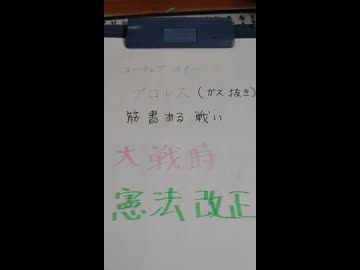 ユーチュブ スター
プロレス (ガス抜き)
筋書ある 戦い
大戦時
憲法改正